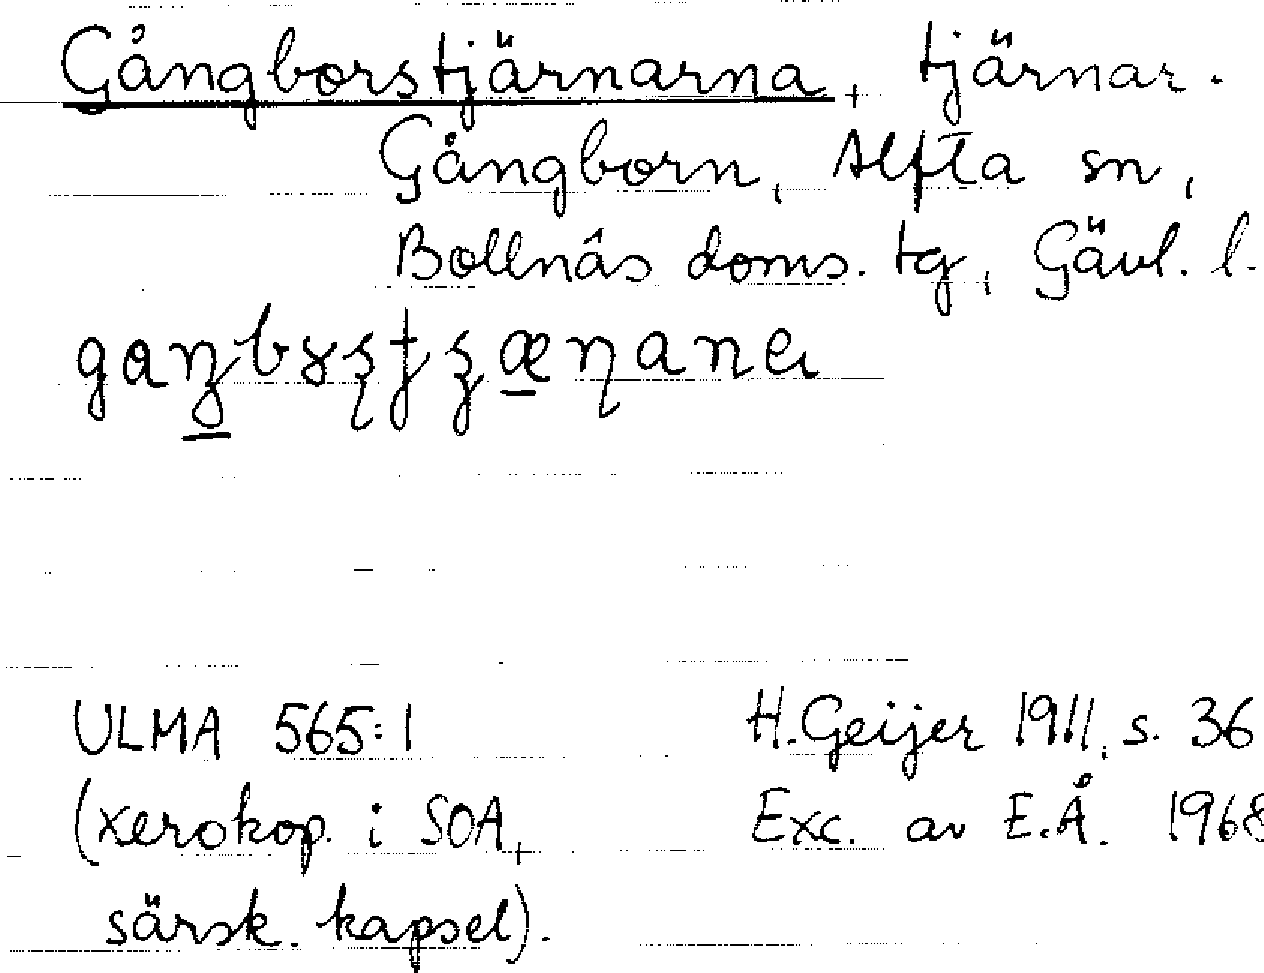 Gångborstjärnarna, tjärnar.
Gångborn, Alfta sn,
Bollnäs doms. tg, Gävl. l.
ULMA 565:1 H. Geijer 1911, s. 36
(xerokop. i SOA, Exc. av E.Å. 1968
särsk. kapsel).